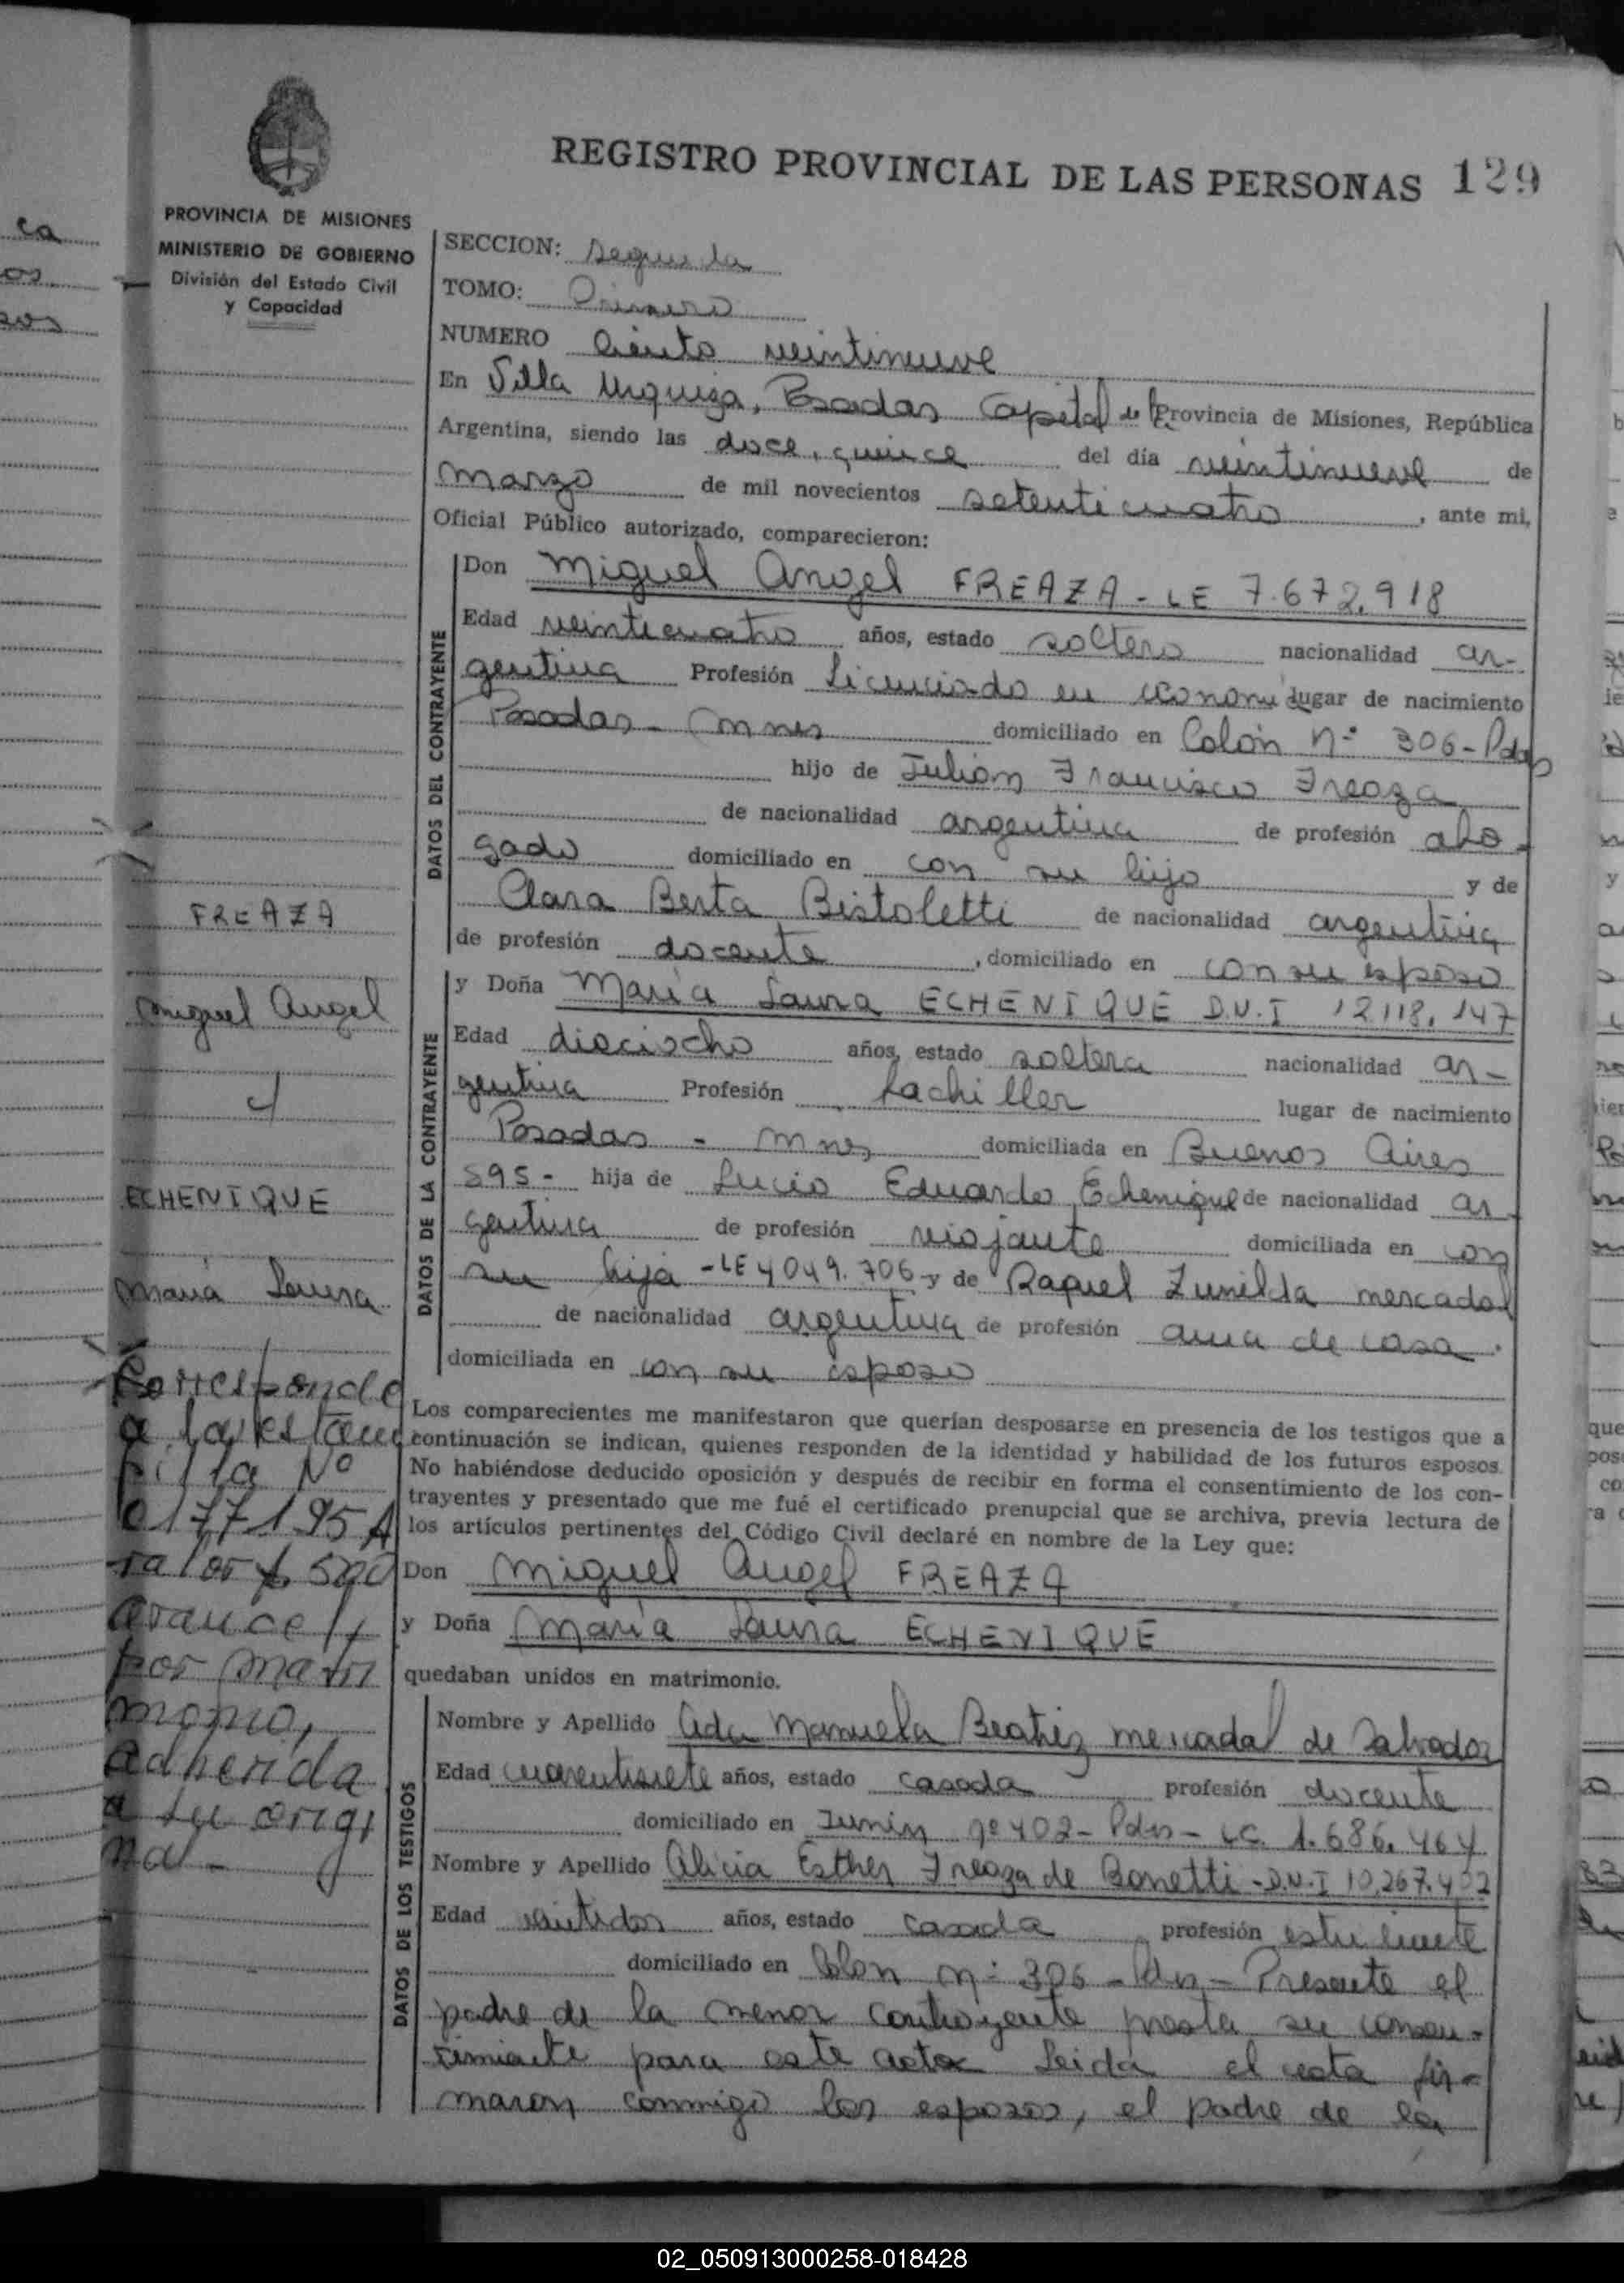 REGISTRO PROVINCIAL DE LAS PERSONAS 129
PROVINCIA DE MISIONES
MINISTERIO DE GOBIERNO
División del Estado Civil
y Capacidad
SECCION: Segunda
TOMO: Primero
NUMERO Ciento veintinueve
En Villa Urquiza, Posadas Capital de la Provincia de Misiones, República
Argentina, siendo las doce, quince del día veintinueve de
marzo de mil novecientos setenticuatro, ante mi,
Oficial Público autorizado, comparecieron:
DATOS DEL CONTRAYENTE
Don Miguel Angel FREAZA - LE 7.672.918
Edad veinticuatro años, estado soltero nacionalidad ar-
gentina Profesión Licenciado en economía lugar de nacimiento
Posadas - Mnes domiciliado en Colón Nº 306 - Pdas
hijo de Julian Francisco Freaza
de nacionalidad argentina de profesión abo-
gado domiciliado en con su hijo y de
Clara Berta Bistoletti de nacionalidad argentina
de profesión docente, domiciliado en con su esposo
DATOS DE LA CONTRAYENTE
y Doña María Laura ECHENIQUE D.N.I 12.118.147
Edad dieciocho años, estado soltera nacionalidad ar-
gentina Profesión bachiller lugar de nacimiento
Posadas - Mnes domiciliada en Buenos Aires
595 - hija de Lucio Eduardo Echenique de nacionalidad ar-
gentina de profesión viajante domiciliada en con
su hija - LE 4049.706 y de Raquel Zunilda Mercadal
de nacionalidad argentina de profesión ama de casa.
domiciliada en con su esposo
Los comparecientes me manifestaron que querían desposarse en presencia de los testigos que a
continuación se indican, quienes responden de la identidad y habilidad de los futuros esposos.
No habiéndose deducido oposición y después de recibir en forma el consentimiento de los con-
trayentes y presentado que me fué el certificado prenupcial que se archiva, previa lectura de
los artículos pertinentes del Código Civil declaré en nombre de la Ley que:
Don Miguel Angel FREAZA
y Doña María Laura ECHENIQUE
quedaban unidos en matrimonio.
DATOS DE LOS TESTIGOS
Nombre y Apellido Aida Manuela Beatriz Mercadal de Salvador
Edad cuarentisiete años, estado casada profesión docente
domiciliado en Junin nº 402 - Pdas - LC. 1.686.464
Nombre y Apellido Alicia Esther Freaza de Bonetti - D.N.I 10.267.402
Edad veintidos años, estado casada profesión estudiante
domiciliado en Colon Nº 306 - Pdas - Presente el
padre de la menor contrayente presta su consen-
timiento para este acto Leida el acta fir-
maron conmigo los esposos, el padre de la
FREAZA
Miguel Angel
y
ECHENIQUE
María Laura
Corresponde
a la estam
pilla Nº
0177195 A
valor $ 500
arancel,
por matri
monio,
adherida
a su origi
nal -
02_050913000258-018428